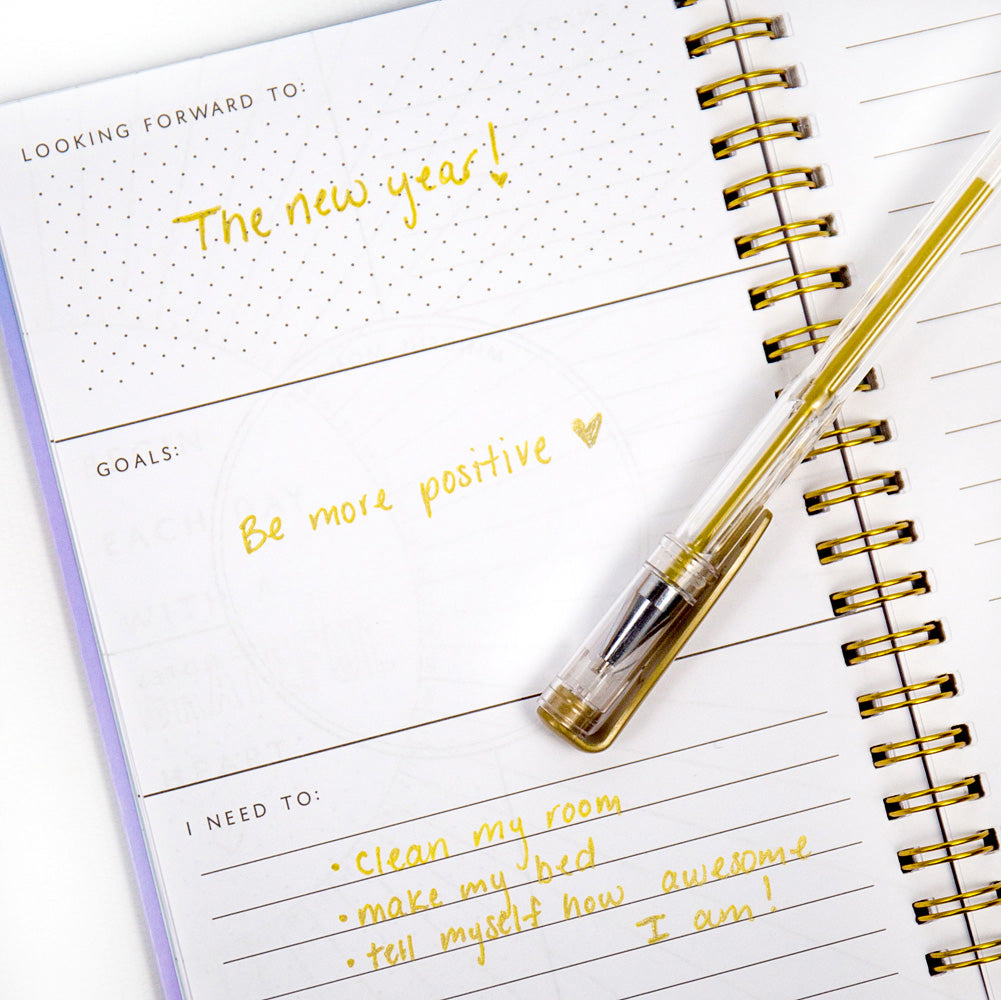 LOOKING FORWARD TO:
The new year!
GOALS:
Be more positive ♥
I NEED TO:
• clean my room
• make my bed
• tell myself how awesome
I am!